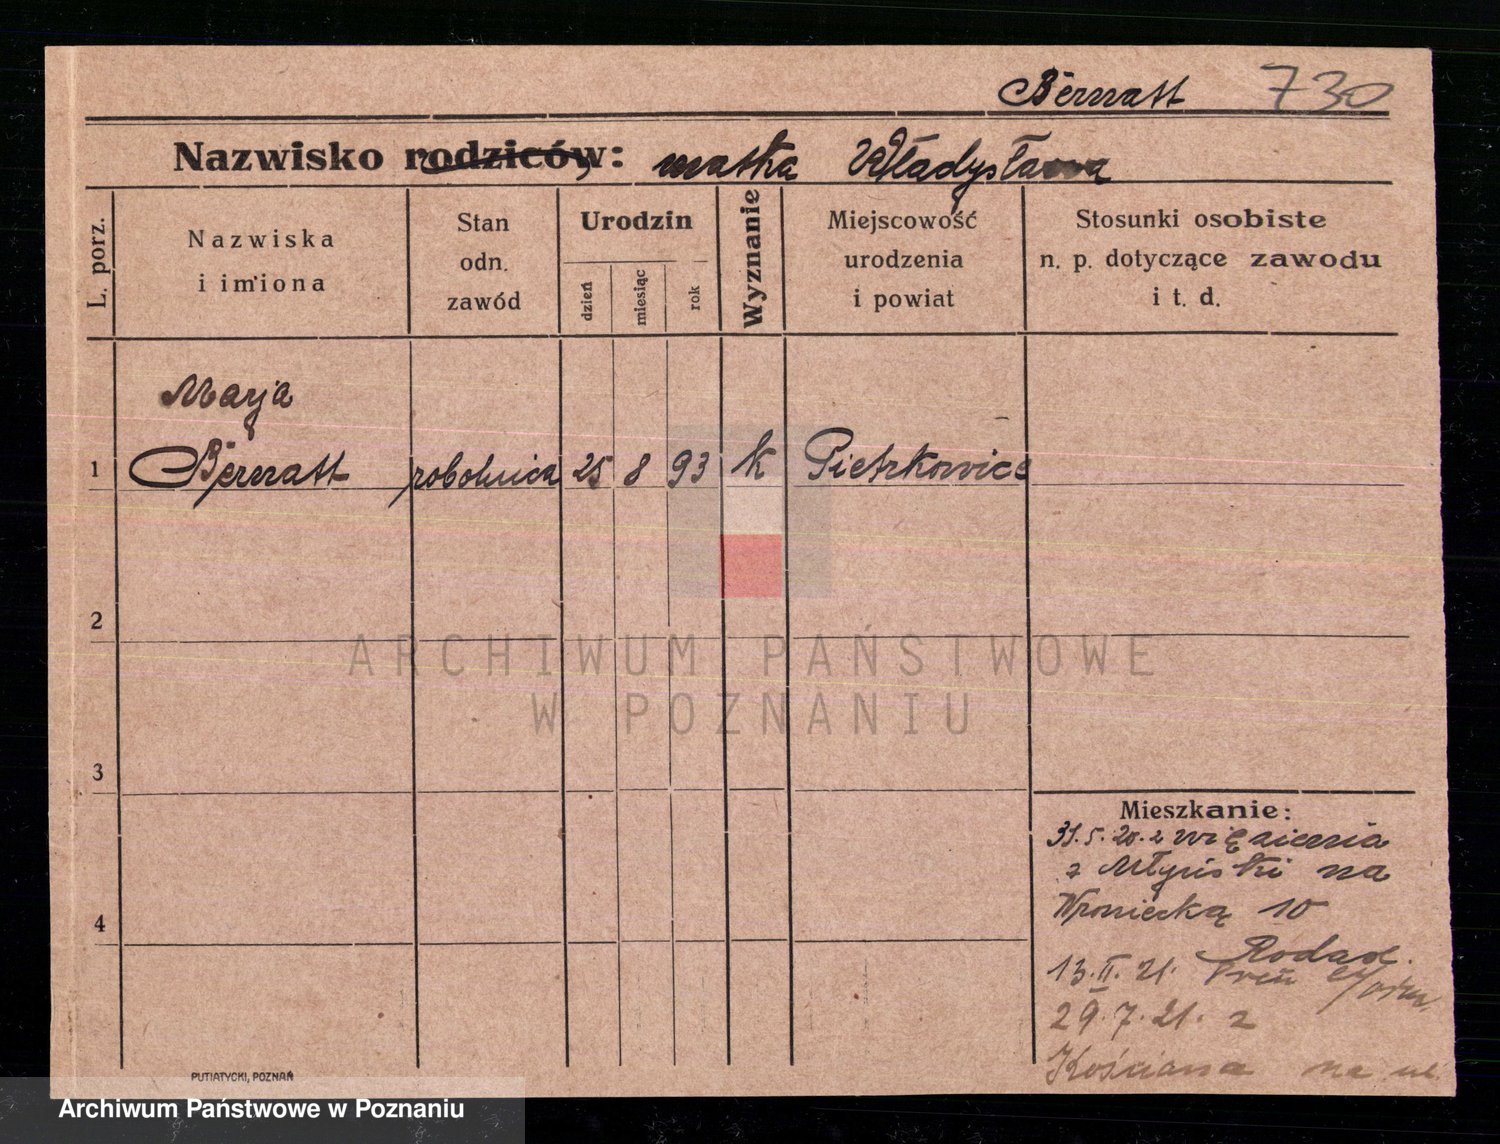 Bernatt 730
Nazwisko rodziców: matka Władysława
L. porz.
Nazwiska
i imiona
Stan
odn.
zawód
Urodzin
dzień
miesiąc
rok
Wyznanie
Miejscowość
urodzenia
i powiat
Stosunki osobiste
n. p. dotyczące zawodu
i t. d.
Marja
1 Bernatt robotnica 25 8 93 k Pietrkowice
2
ARCHIWUM PAŃSTWOWE
W POZNANIU
3
Mieszkanie:
31.5.20. z więzienia
z Młyński na
Wroniecką 10
4
13.II.21.
29.7.21. z
Kościana na ul.
PUTIATYCKI, POZNAŃ
Archiwum Państwowe w Poznaniu